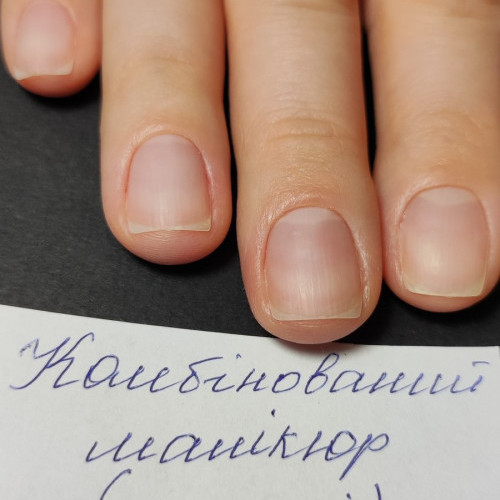 Комбінований
манікюр